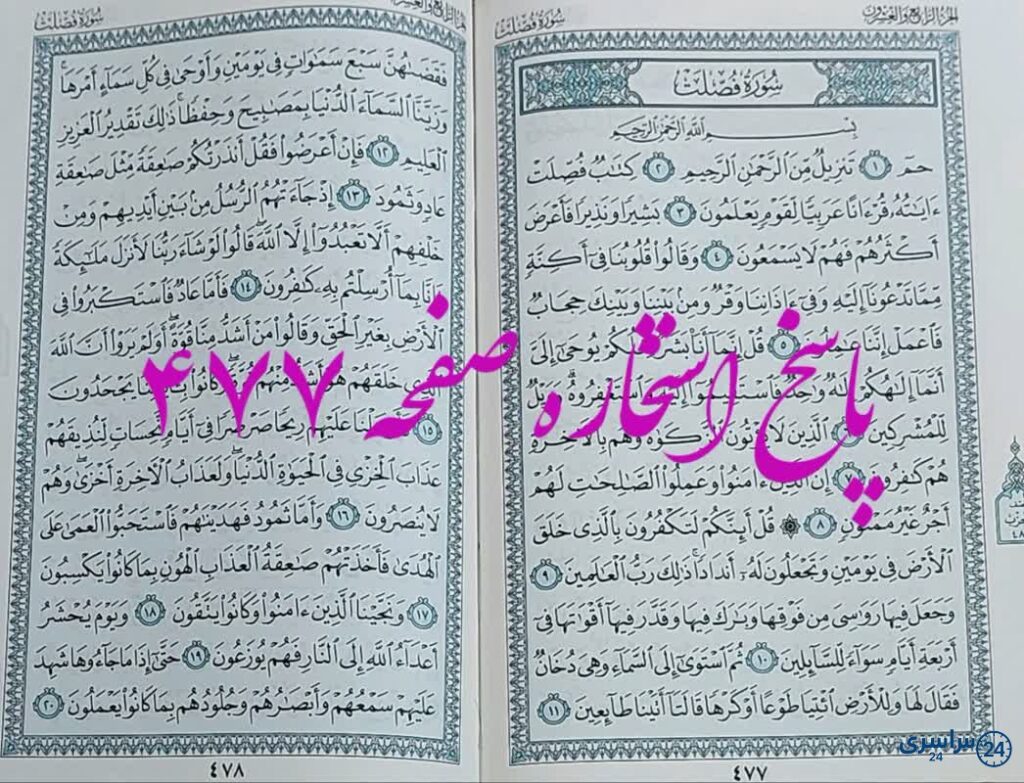 الجزء الرابع والعشرون
سورة فصلت
سُورَةُ فُصِّلَتْ
بِسْمِ اللَّهِ الرَّحْمَٰنِ الرَّحِيمِ
حمٓ ١ تَنزِيلٌ مِّنَ الرَّحْمَٰنِ الرَّحِيمِ ٢ كِتَابٌ فُصِّلَتْ
ءَايَاتُهُ قُرْءَانًا عَرَبِيًّا لِّقَوْمٍ يَعْلَمُونَ ٣ بَشِيرًا وَنَذِيرًا فَأَعْرَضَ
أَكْثَرُهُمْ فَهُمْ لَا يَسْمَعُونَ ٤ وَقَالُوا قُلُوبُنَا فِي أَكِنَّةٍ
مِّمَّا تَدْعُونَا إِلَيْهِ وَفِي ءَاذَانِنَا وَقْرٌ وَمِنْ بَيْنِنَا وَبَيْنِكَ حِجَابٌ
فَاعْمَلْ إِنَّنَا عَامِلُونَ ٥ قُلْ إِنَّمَا أَنَا بَشَرٌ مِّثْلُكُمْ يُوحَىٰ إِلَيَّ
أَنَّمَا إِلَٰهُكُمْ إِلَٰهٌ وَاحِدٌ فَاسْتَقِيمُوا إِلَيْهِ وَاسْتَغْفِرُوهُ وَوَيْلٌ
لِّلْمُشْرِكِينَ ٦ الَّذِينَ لَا يُؤْتُونَ الزَّكَوٰةَ وَهُم بِالْآخِرَةِ
هُمْ كَافِرُونَ ٧ إِنَّ الَّذِينَ ءَامَنُوا وَعَمِلُوا الصَّالِحَاتِ لَهُمْ
أَجْرٌ غَيْرُ مَمْنُونٍ ٨ ۞ قُلْ أَئِنَّكُمْ لَتَكْفُرُونَ بِالَّذِي خَلَقَ
الْأَرْضَ فِي يَوْمَيْنِ وَتَجْعَلُونَ لَهُ أَندَادًا ذَٰلِكَ رَبُّ الْعَالَمِينَ ٩
وَجَعَلَ فِيهَا رَوَاسِيَ مِن فَوْقِهَا وَبَارَكَ فِيهَا وَقَدَّرَ فِيهَا أَقْوَاتَهَا فِي
أَرْبَعَةِ أَيَّامٍ سَوَاءً لِّلسَّائِلِينَ ١٠ ثُمَّ اسْتَوَىٰ إِلَى السَّمَاءِ وَهِيَ دُخَانٌ
فَقَالَ لَهَا وَلِلْأَرْضِ ائْتِيَا طَوْعًا أَوْ كَرْهًا قَالَتَا أَتَيْنَا طَائِعِينَ ١١
٤٧٧
سورة فصلت
فَقَضَاهُنَّ سَبْعَ سَمَٰوَاتٍ فِي يَوْمَيْنِ وَأَوْحَىٰ فِي كُلِّ سَمَاءٍ أَمْرَهَا
وَزَيَّنَّا السَّمَاءَ الدُّنْيَا بِمَصَابِيحَ وَحِفْظًا ذَٰلِكَ تَقْدِيرُ الْعَزِيزِ
الْعَلِيمِ ١٢ فَإِنْ أَعْرَضُوا فَقُلْ أَنذَرْتُكُمْ صَاعِقَةً مِّثْلَ صَاعِقَةِ
عَادٍ وَثَمُودَ ١٣ إِذْ جَاءَتْهُمُ الرُّسُلُ مِن بَيْنِ أَيْدِيهِمْ وَمِنْ
خَلْفِهِمْ أَلَّا تَعْبُدُوا إِلَّا اللَّهَ قَالُوا لَوْ شَاءَ رَبُّنَا لَأَنزَلَ مَلَائِكَةً
فَإِنَّا بِمَا أُرْسِلْتُم بِهِ كَافِرُونَ ١٤ فَأَمَّا عَادٌ فَاسْتَكْبَرُوا فِي
الْأَرْضِ بِغَيْرِ الْحَقِّ وَقَالُوا مَنْ أَشَدُّ مِنَّا قُوَّةً أَوَلَمْ يَرَوْا أَنَّ اللَّهَ
الَّذِي خَلَقَهُمْ هُوَ أَشَدُّ مِنْهُمْ قُوَّةً وَكَانُوا بِآيَاتِنَا يَجْحَدُونَ
١٥ فَأَرْسَلْنَا عَلَيْهِمْ رِيحًا صَرْصَرًا فِي أَيَّامٍ نَّحِسَاتٍ لِّنُذِيقَهُمْ
عَذَابَ الْخِزْيِ فِي الْحَيَوٰةِ الدُّنْيَا وَلَعَذَابُ الْآخِرَةِ أَخْزَىٰ وَهُمْ
لَا يُنصَرُونَ ١٦ وَأَمَّا ثَمُودُ فَهَدَيْنَاهُمْ فَاسْتَحَبُّوا الْعَمَىٰ عَلَى
الْهُدَىٰ فَأَخَذَتْهُمْ صَاعِقَةُ الْعَذَابِ الْهُونِ بِمَا كَانُوا يَكْسِبُونَ
١٧ وَنَجَّيْنَا الَّذِينَ ءَامَنُوا وَكَانُوا يَتَّقُونَ ١٨ وَيَوْمَ يُحْشَرُ
أَعْدَاءُ اللَّهِ إِلَى النَّارِ فَهُمْ يُوزَعُونَ ١٩ حَتَّىٰ إِذَا مَا جَاءُوهَا شَهِدَ
عَلَيْهِمْ سَمْعُهُمْ وَأَبْصَارُهُمْ وَجُلُودُهُم بِمَا كَانُوا يَعْمَلُونَ ٢٠
٤٧٨
پاسخ استخاره صفحه ۴۷۷
سراسری 24
24